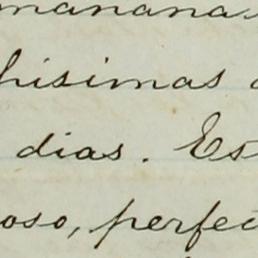 manana
hisimas
dias. Es
oso, perfec